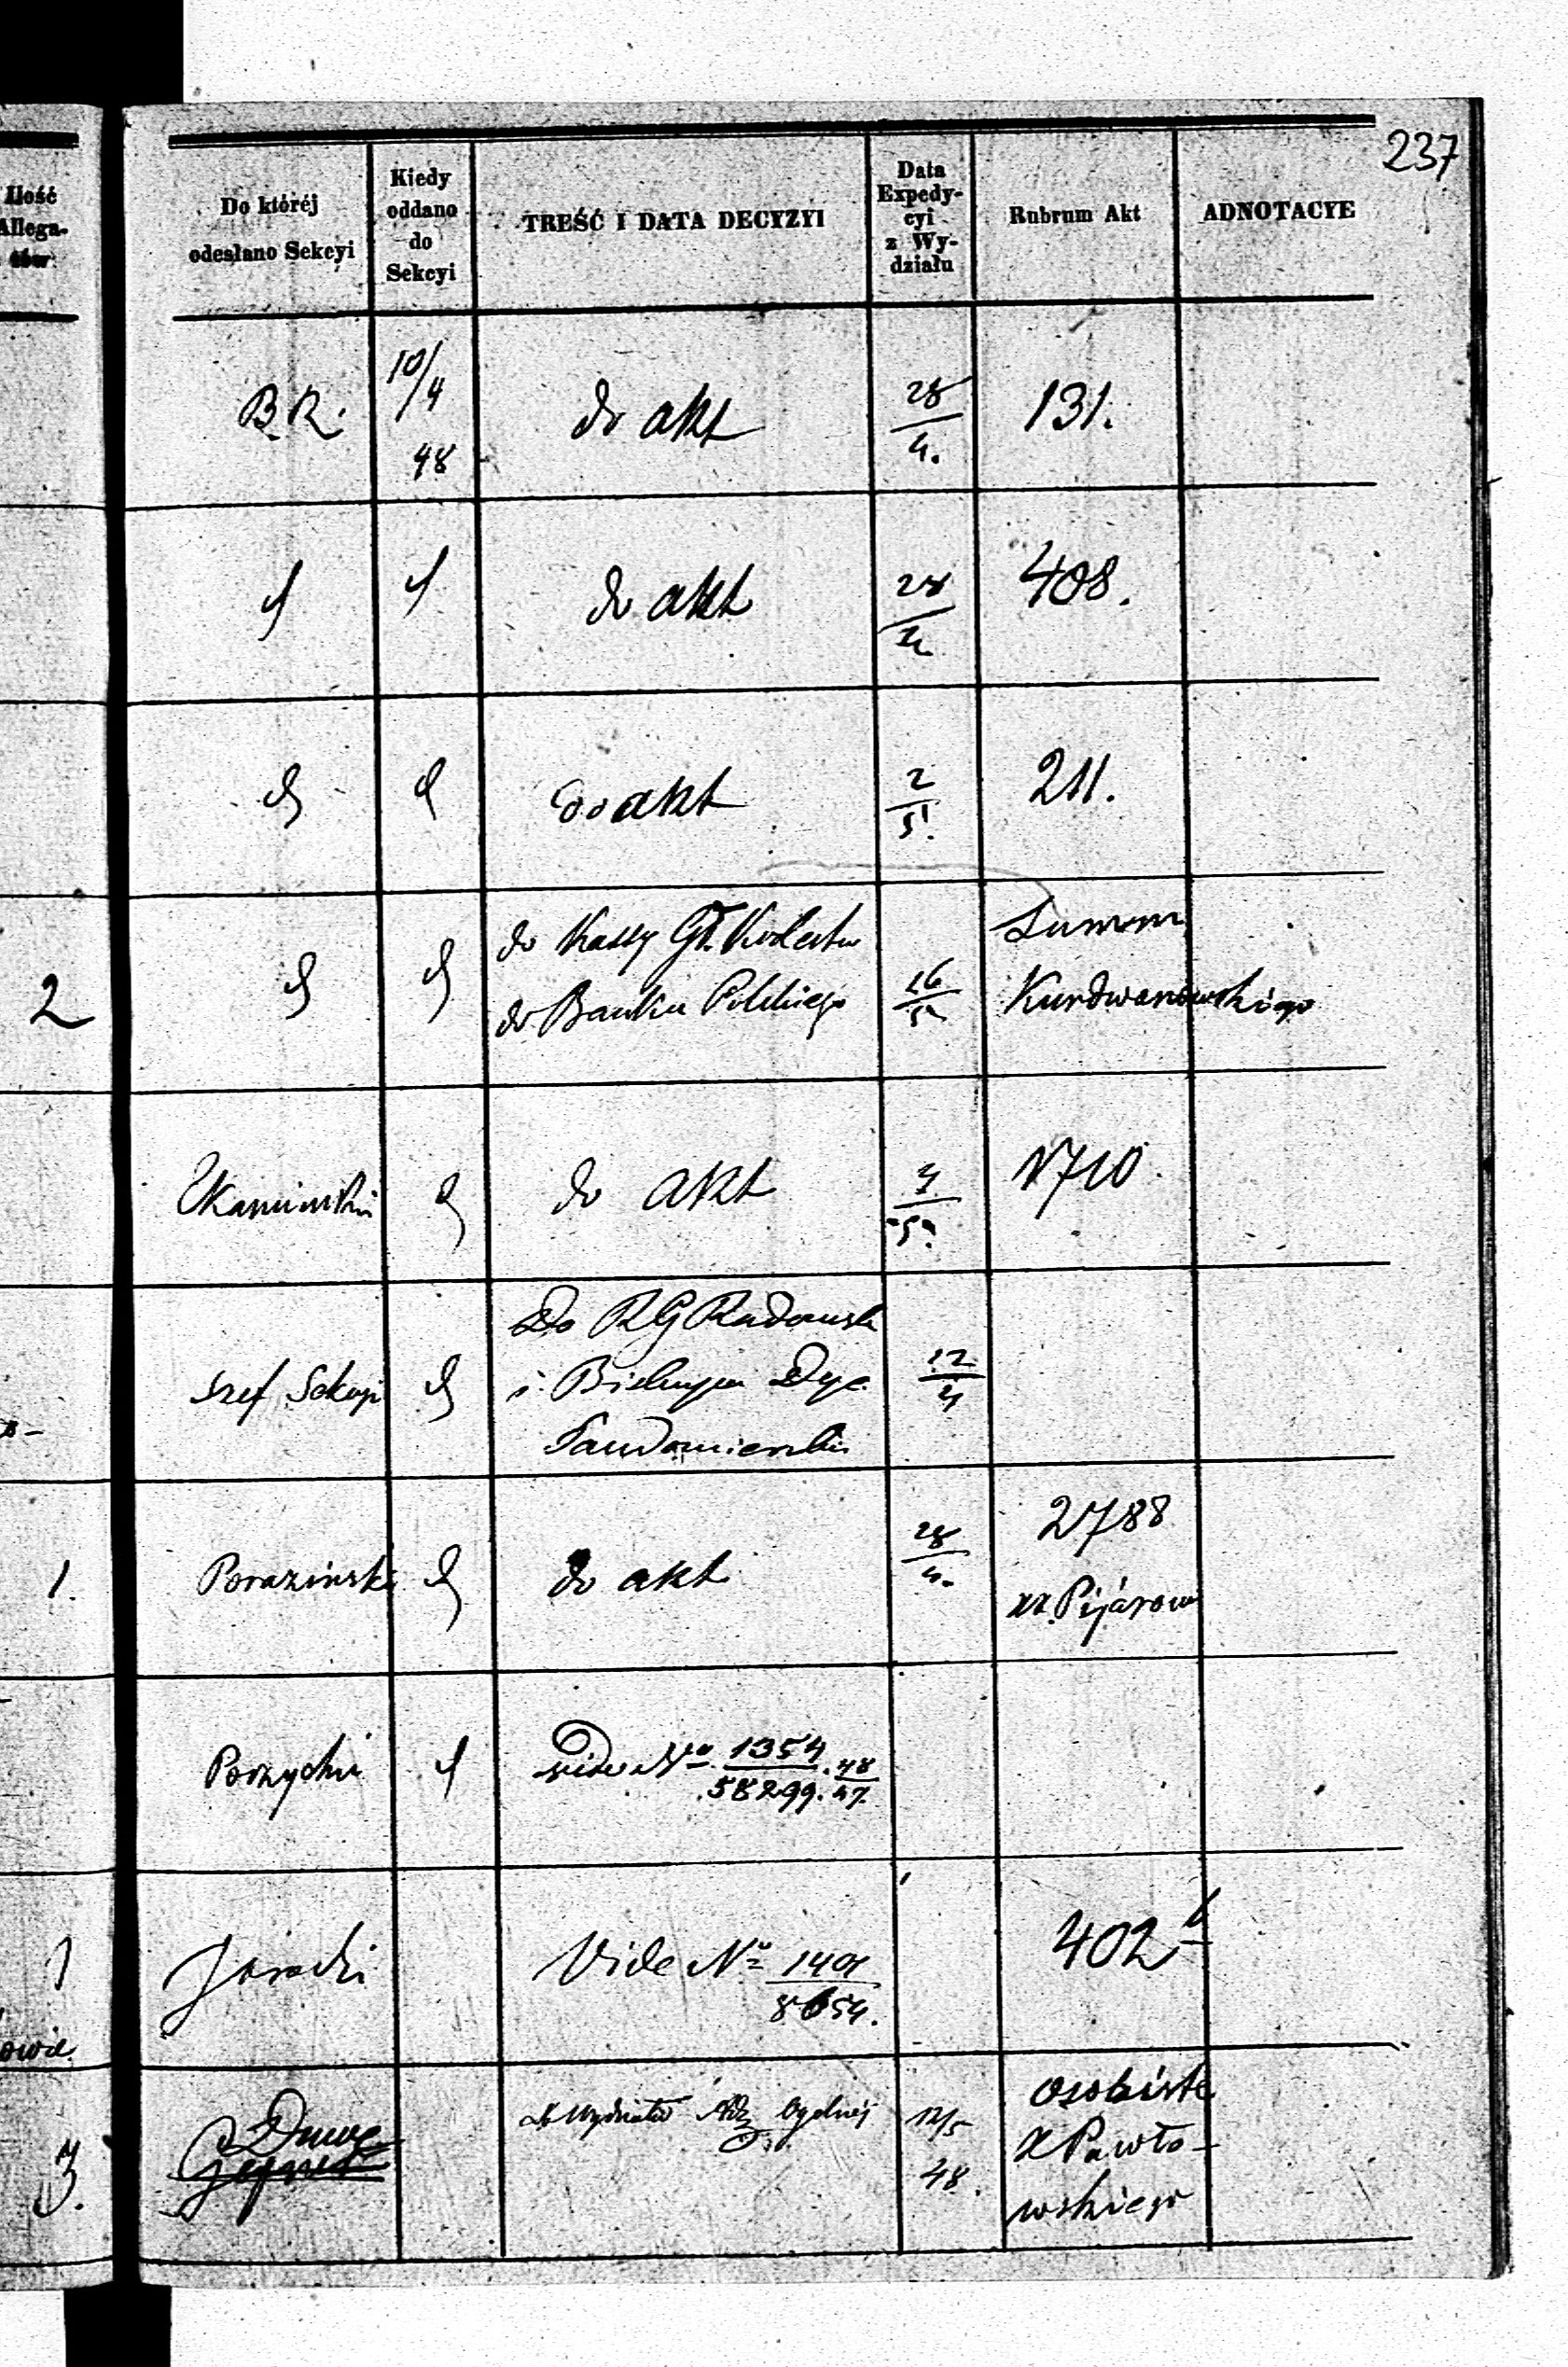 237
Ilość
Allega-
tów
Do któréj
odesłano Sekcyi
Kiedy
oddano
do
Sekcyi
TREŚĆ I DATA DECYZYI
Data
Expedy-
cyi
z Wy-
działu
Rubrum Akt
ADNOTACYE
B.R.
10/4
48
do akt
28/4.
131.
do akt
28/4
408.
do akt
2/5.
211.
2
do Kassy Gł. Królestw
do Banku Polskiego
16/5
Summ
Kurdwanowskiego
Kamiński
do akt
4/5.
1710.
Szef Sekcyi
Do RG Radomsk
i Biskupa Dye.
Sandomierski
12/4
1.
Porazinski
do akt
28/4.
2788
xx. Pijárow
Porzycki
vide No 1354/58299. 48/47.
1
Jarocki
Vide No 1401/8654.
402 b
owie.
3.
do Wydziału
12/5
48.
osobiste
X Pawło-
wskiego